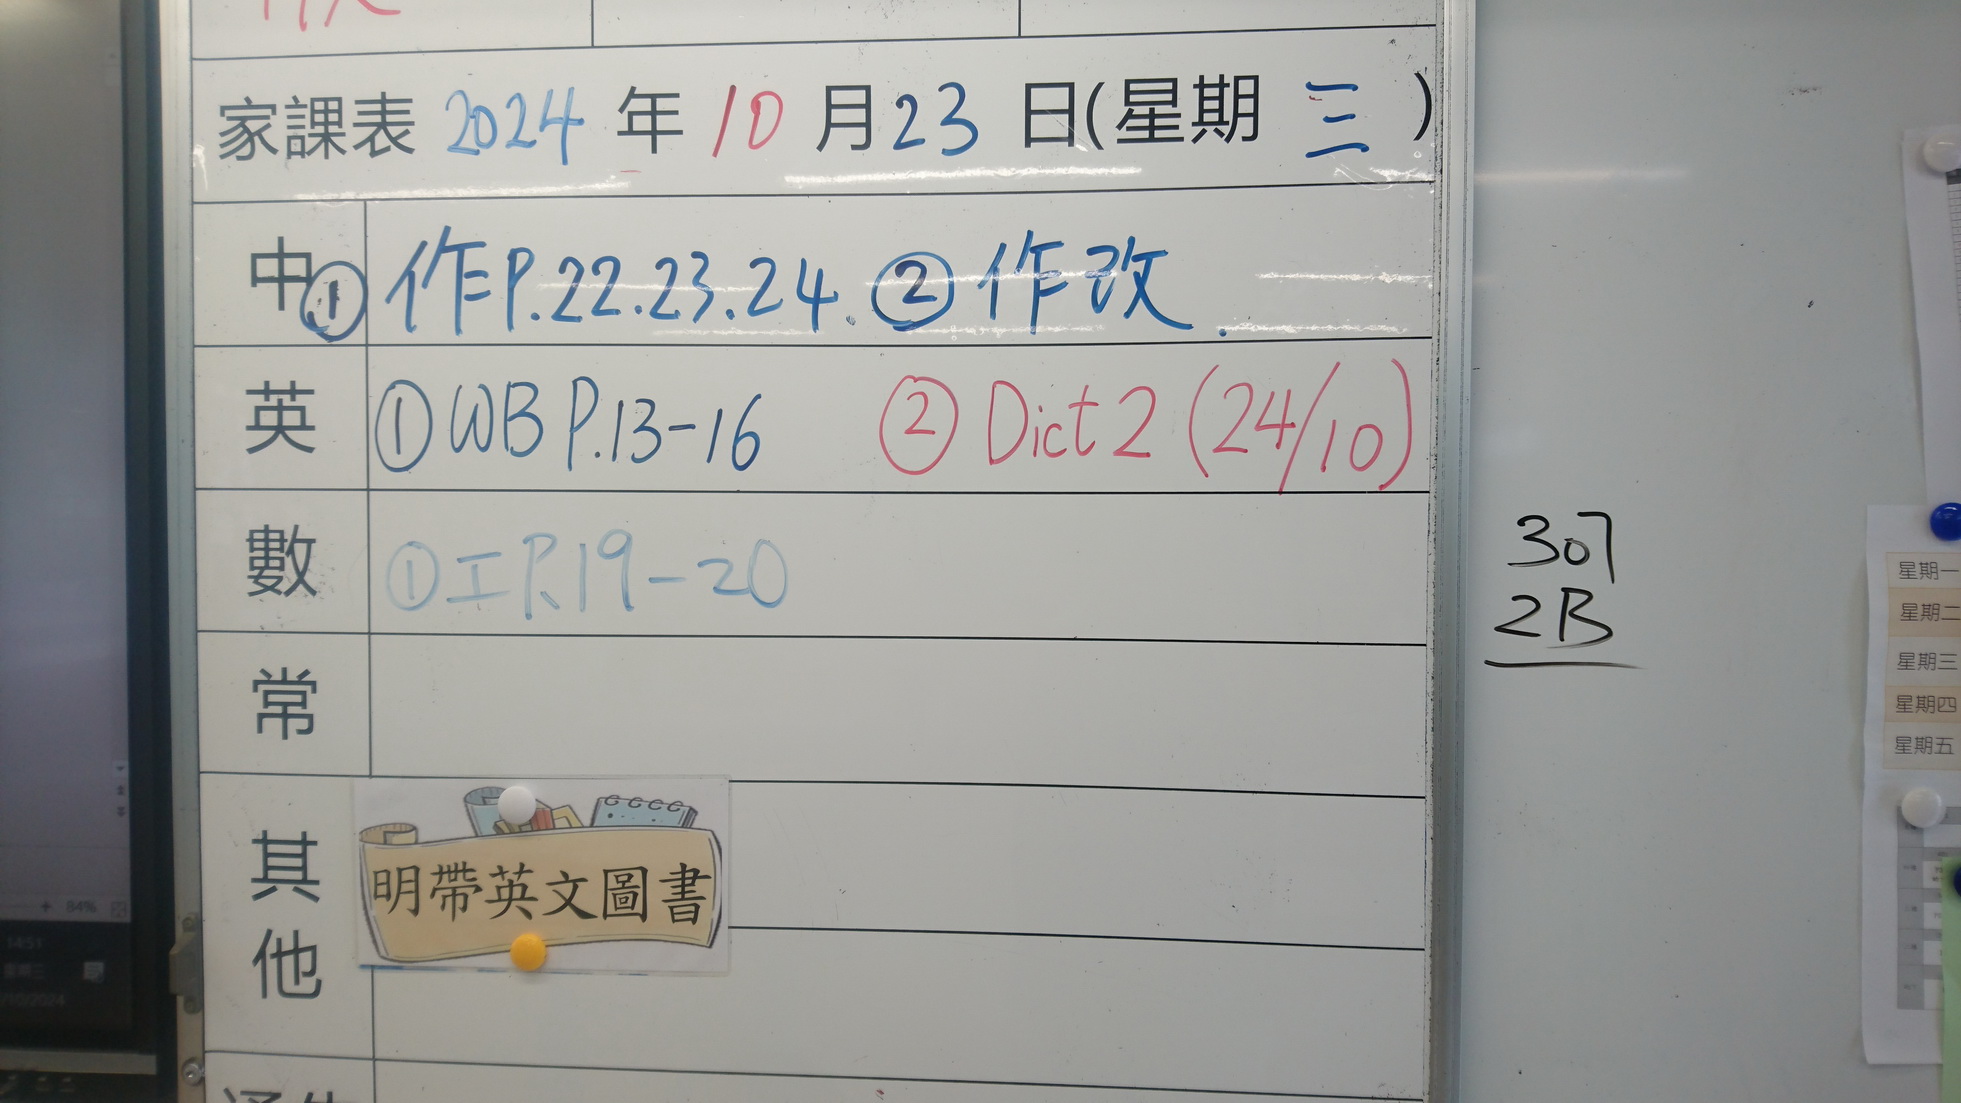 家課表 2024 年 10 月 23 日(星期 三 )
中 ① 作P.22.23.24. ② 作改.
英 ① WB P.13-16 ② Dict 2 (24/10)
數 ① 工 P.19-20
常
其他
明帶英文圖書
307
2B
星期一
星期二
星期三
星期四
星期五
84%
14:51